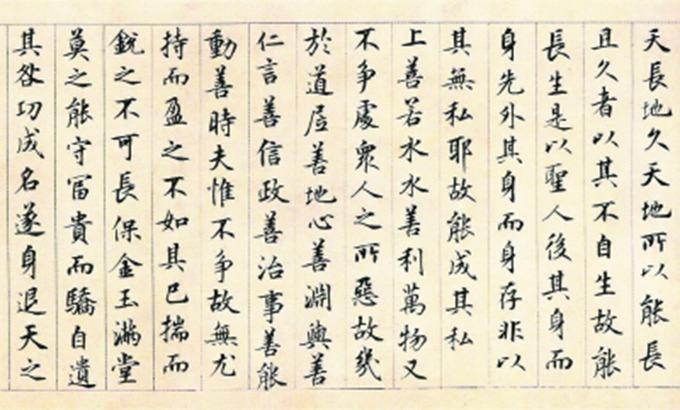 天長地久天地所以能長
且久者以其不自生故能
長生是以聖人後其身而
身先外其身而身存非以
其無私耶故能成其私
上善若水水善利萬物又
不争處衆人之所惡故幾
於道居善地心善淵與善
仁言善信政善治事善能
動善時夫惟不争故無尤
持而盈之不如其已揣而
銳之不可長保金玉滿堂
莫之能守富貴而驕自遺
其咎功成名遂身退天之